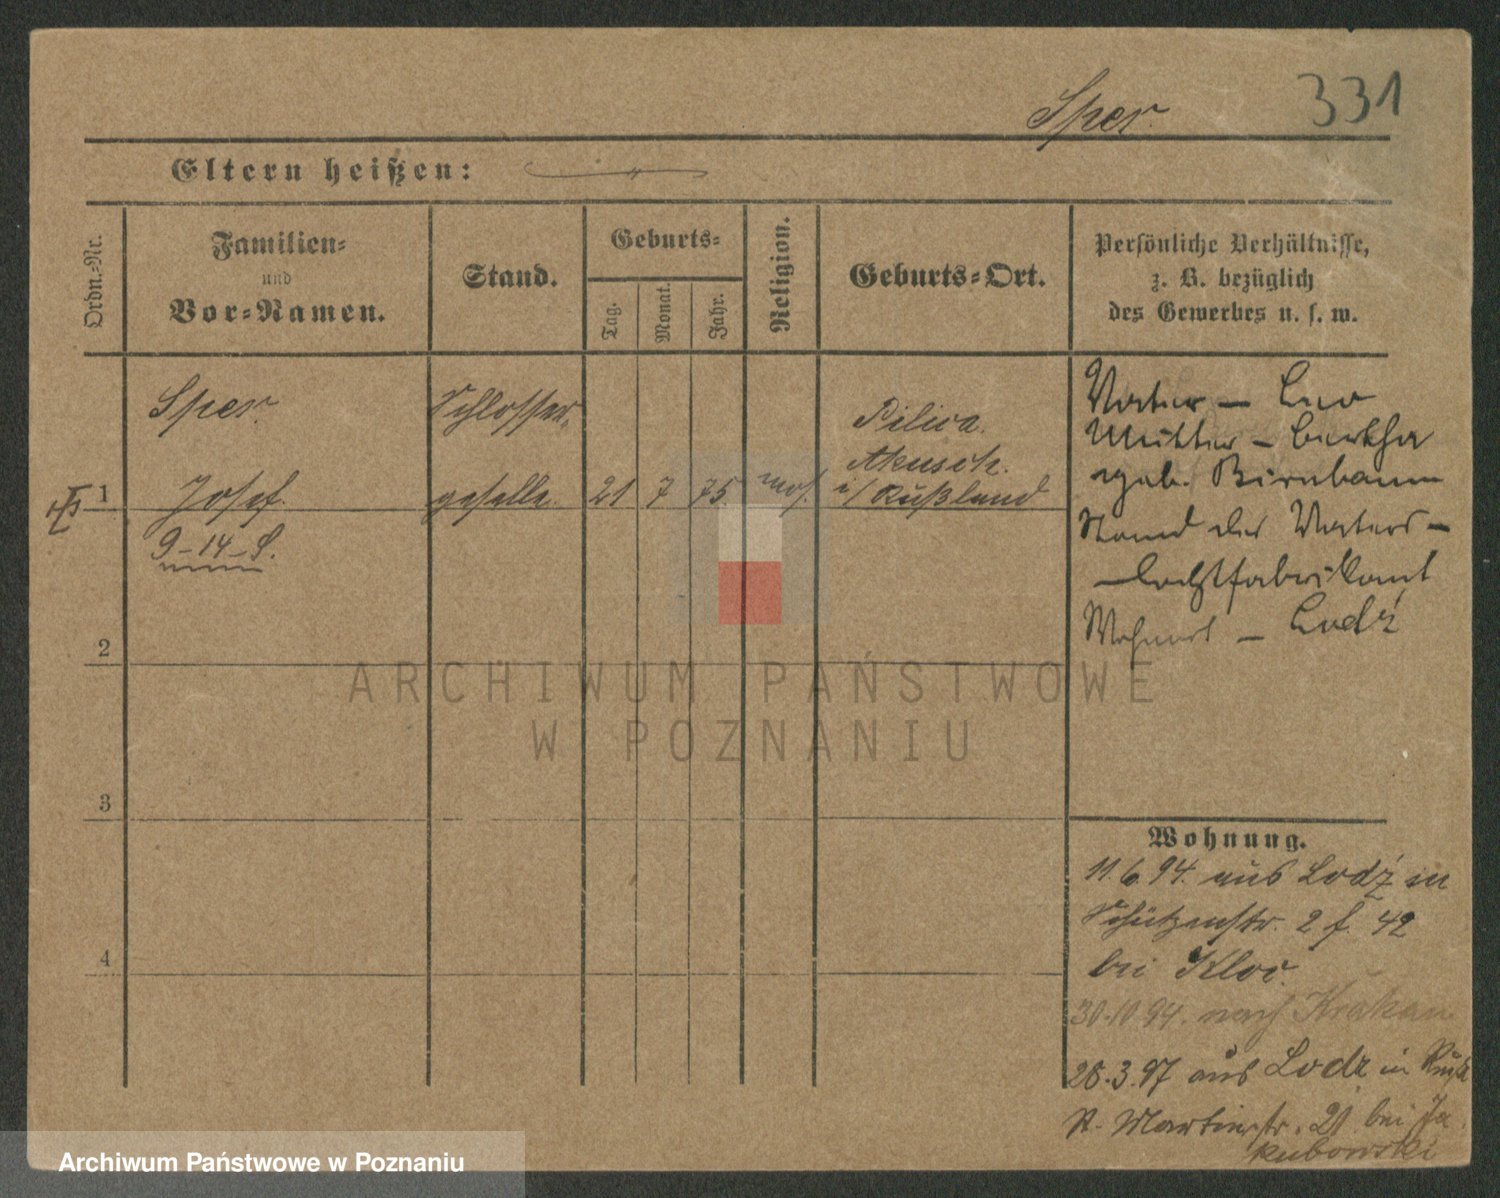 331
Sper.
Eltern heißen:
Ordn.-Nr.
Familien-
und
Vor-Namen.
Stand.
Geburts-
Tag.
Monat.
Jahr.
Religion.
Geburts-Ort.
Persönliche Verhältnisse,
z. B. bezüglich
des Gewerbes u. s. w.
Sper.
Schlosser,
Pilica.
1 Josef. geselle. 21 7 75. mos. i/ Rußland
9-14-S.
2
3
4
Vater – Leo
Mutter – Bertha
geb. Birnbaum
Stand des Vaters –
Wohnort – Lodź
Wohnung.
11.6.94. aus Lodź in
Schützenstr. 2 f. 42
bei Kloc.
30.10.94. nach Krakau
28.3.97 aus Lodz in
St. Martinstr. 21 bei Ja
kubowski
ARCHIWUM PAŃSTWOWE
W POZNANIU
Archiwum Państwowe w Poznaniu